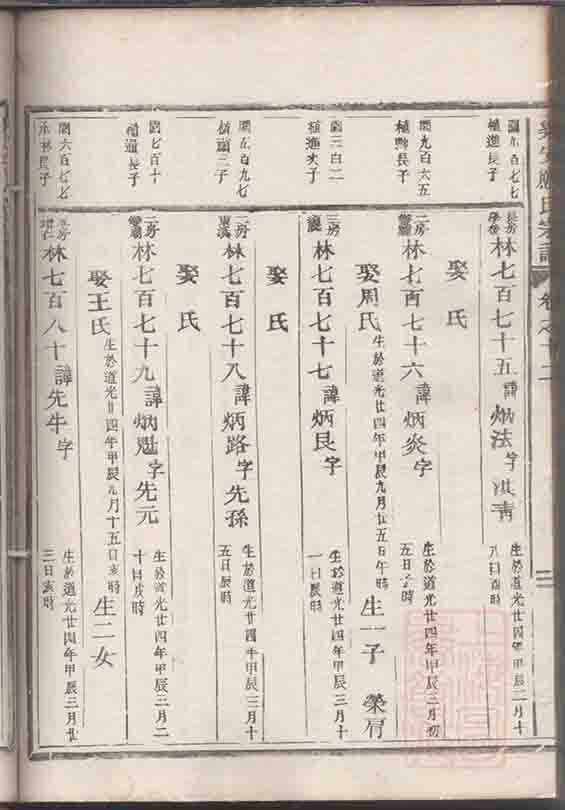 應氏宗譜
卷之十二
閏九百七七
植進長子
長房
林七百七十五諱炳法字洪青
生於道光廿四年甲辰二月十
八日酉時
娶 氏
閏九百六五
植興長子
二房
林七百七十六諱炳炎字
生於道光廿四年甲辰三月初
五日子時
娶周氏
生於道光廿四年甲辰九月廿五日午時
生一子 榮肩
植進次子
三房
林七百七十七諱炳艮字
生於道光廿四年甲辰三月十
一日辰時
娶 氏
閏五百九七
植顯三子
二房
林七百七十八諱炳路字先孫
生於道光廿四年甲辰三月十
五日辰時
娶 氏
閏七百十
植通長子
二房
林七百七十九諱炳魁字先元
生於道光廿四年甲辰三月二
十日戌時
娶王氏
生於道光廿四年甲辰九月十五日亥時
生二女
閏六百七七
永林長子
二房
林七百八十諱先牛字
生於道光廿四年甲辰三月廿
三日亥時